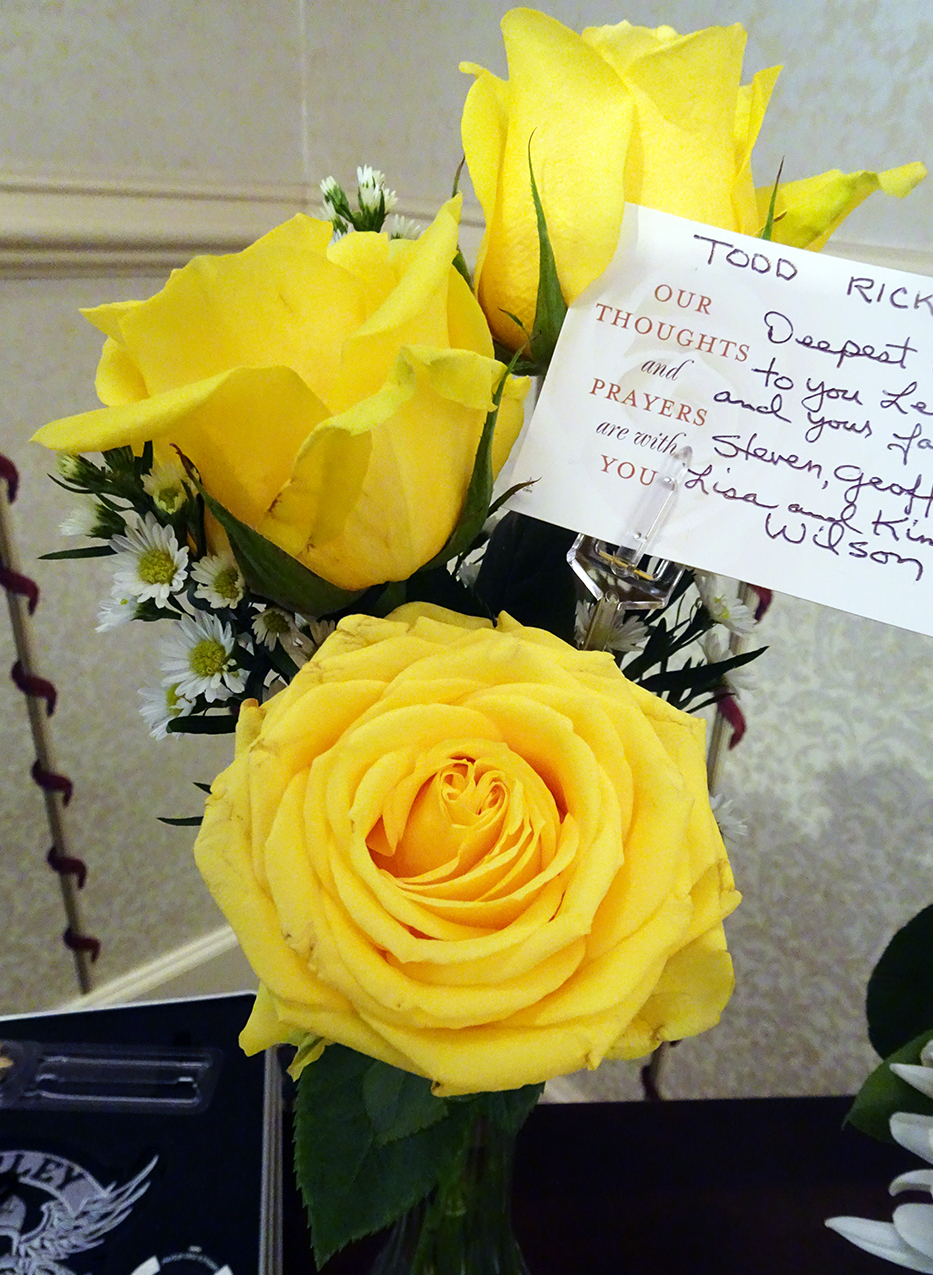 TODD RICK
OUR
THOUGHTS
and
PRAYERS
are with
YOU
Deepest
to you Le
and your fa
Steven, Geoff
Lisa and Kim
Wilson
LEY